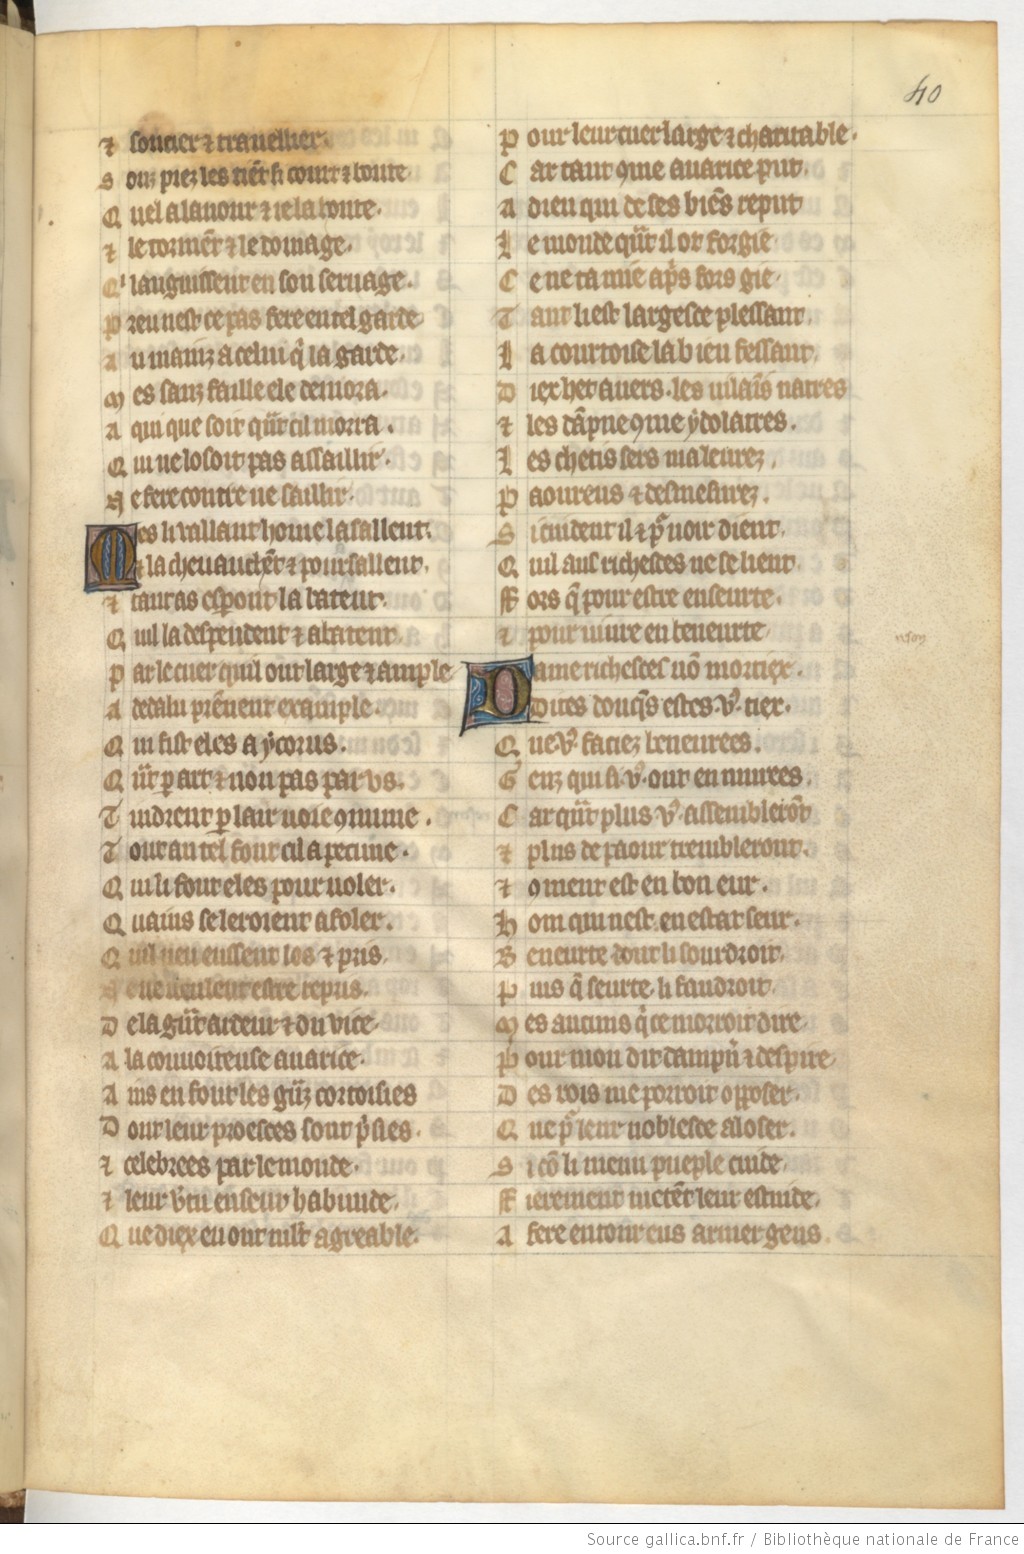 40
⁊ soucier ⁊ trauellier.
S ouz piez les tiēt si court ⁊ boute
Q uel a lanour ⁊ ie la route.
⁊ le tormēt ⁊ le domage.
Q' languissent en son seruage.
P reu nest ce pas fere en tel garde
A u mainz a celui q̄ la garde.
M es sanz faille ele demora.
A qui que soit qn̄t cil morra.
Q ui ne losoit pas assaillir.
N e fere contre ne saillir.
M es li vaillant home lassallent.
⁊ la cheuauchēt ⁊ poursallent.
⁊ tant as esperont la batent.
Q uil la despendent ⁊ abatent.
P ar le cuer quil ont large ⁊ ample
A dedalu prēnent example.
Q ui fist eles a ycorus.
Q n̄t p art ⁊ non pas par vs.
T indrent p lair uoie 9mune.
T out autel font cil a pecune.
Q ui li font eles pour uoler.
Q uains se leroient afoler.
Q uil nen eussent los ⁊ pris.
N e ueulent estre repris.
D e la gn̄t ardeur ⁊ du vice
A la conuoiteuse auarice.
A ins en font les gn̄z cortoisies
D ont leur proesces sont p̄sies.
⁊ celebrees par le monde.
⁊ leur v̄tu en seur habunde.
Q ue diex en ont mlt agreable.
P our leur cuer large ⁊ charitable.
C ar tant 9me auarice put.
A dieu qui de ses biēs reput
L e monde qn̄t il ot forgie
C e ne ta mie ap̄s fors gie.
T ant li est largesce plessant.
L a courtoise la bien fessant.
D iex het auers. les uilaīs natres
⁊ les dāpne 9me ydolatres.
L es chetis sers maleurez.
P aoureus ⁊ desmesurez.
S i cuident il ⁊ p̄ uoir dient.
Q uil aus richesces ne se lient.
F ors q̄ pour estre en seurte.
⁊ pour uiure en beneurte.
D ame richesces nō mortiex.
D ites doncq̄s estes. v9. tiex.
Q ue. v9. faciez beneurees.
G enz qui si. v9. ont enmurees.
C ar qn̄t plus v9. assemblerōt
⁊ plus de paour trembleront.
⁊ 9ment est en bon eur.
H om qui nest en estat seur.
B eneurte dont li sourdroit.
P uis q̄ seurte li faudroit.
M es aucuns q̄ ce morroit dire
P our mon dit dampn̄ ⁊ despire.
D es rois me porroit opposer.
Q ue p̄ leur noblesce aloser.
S i cō li menu pueple cuide.
F ierement metēt leur estuide.
A fere entour eus armer gens.
Source gallica.bnf.fr / Bibliothèque nationale de France